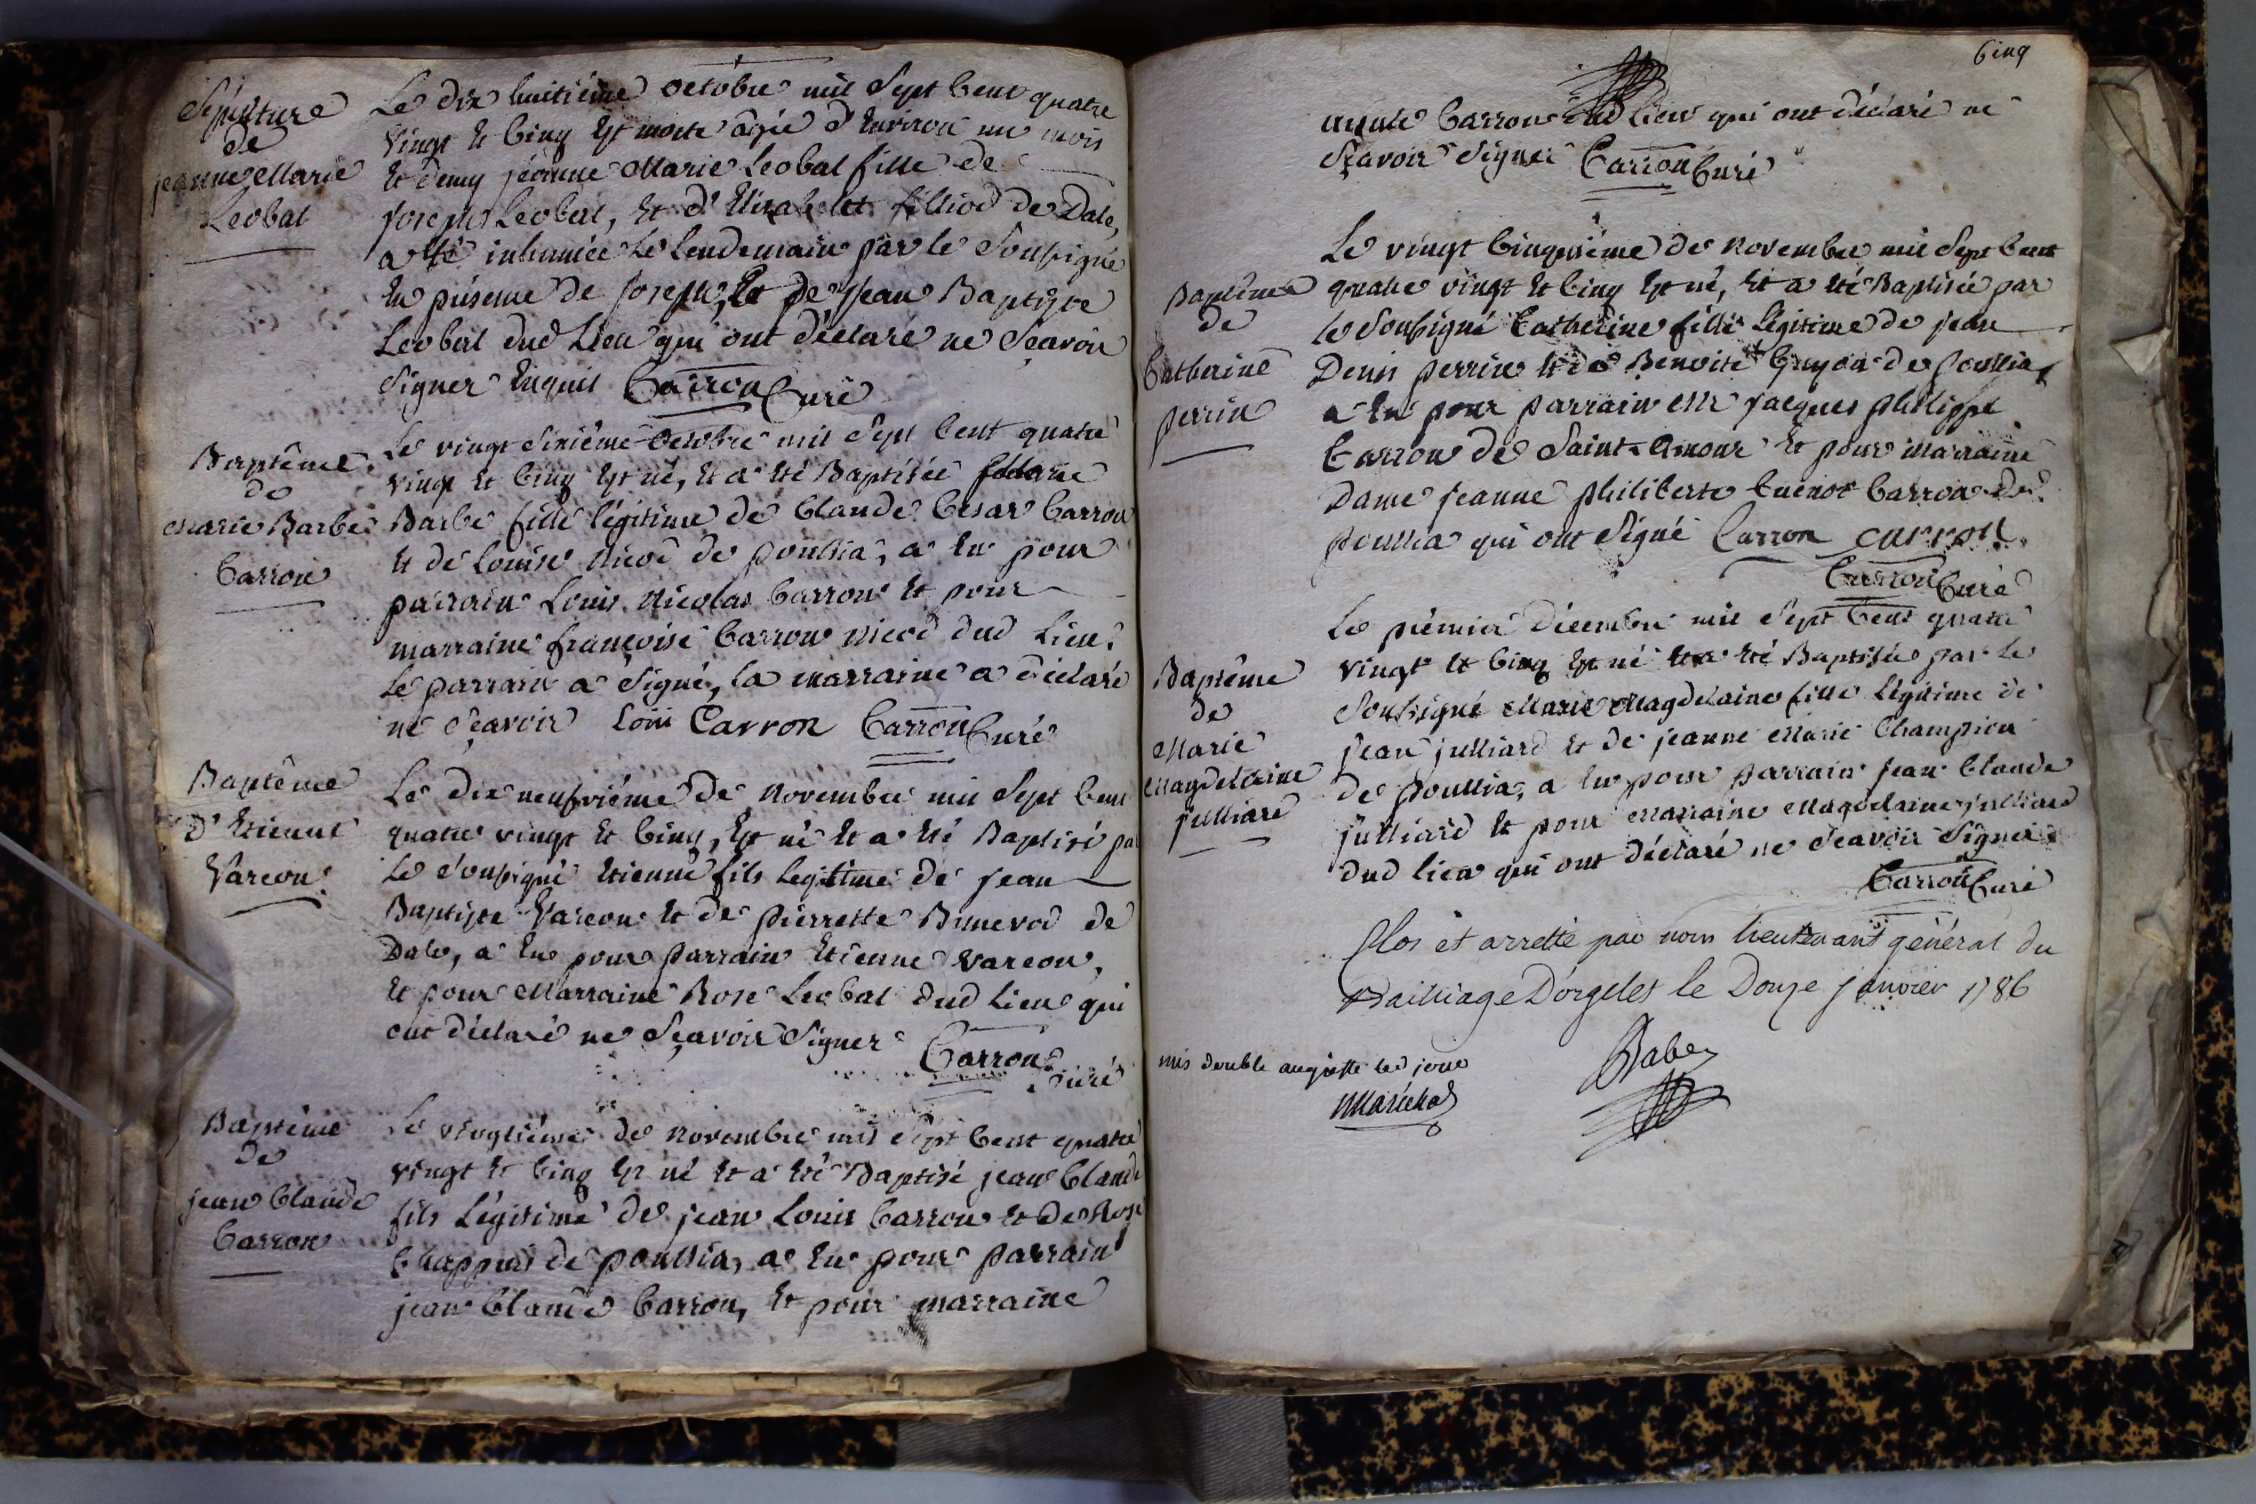 Sépulture
de
jeanne Marie
Leobal
Le dix huitiéme octobre mil Sept Cent quatre
vingt et Cinq Est morte âgée d'Environ un mois
et demy jeanne Marie Leobal fille de
joseph Leobal, et d'Elisabet filliod de Dale,
a été inhumée Le Lendemain par le Soussigné
En présence de joseph, Et de jean Baptiste
Leobal dud Lieu qui ont déclaré ne Sçavoir
Signer Enquis Carron Curé
Baptême
de
Marie Barbe
Carron
Le vingt Sixiéme octobre mil Sept Cent quatre
vingt et Cinq Est né, et a été Baptisée Marie
Barbe fille légitime de Claude Cesar Carron
et de Louise Nicod de poullia, a Eu pour
parrain Louis Nicolas Carron et pour
marraine françoise Carron Nicod dud Lieu,
Le parrain a Signé, la marraine a déclaré
ne Sçavoir Loui Carron Carron Curé
Baptême
d'Etienne
Vareon
Le dix neufviéme de Novembre mil Sept Cent
quatre vingt et Cinq, Est né et a été Baptisé par
Le Soussigné Etienne fils Legitime de jean
Baptiste Vareon et de pierrette de
Dale, a Eu pour parrain Etienne Vareon,
et pour Marraine Rose Leobal dud Lieu qui
ont déclaré ne Sçavoir Signer Carron
Curé
Baptême
de
jean Claude
Carron
Le vingtiéme de Novembre mil Sept Cent quatre
vingt et Cinq Est né et a été Baptisé jean Claude
fils Légitime de jean Louis Carron et de Rose
Chappuis de poullia, a Eu pour parrain
jean Claude Carron, et pour marraine
Cinq
Carron dud Lieu qui ont déclaré ne
Sçavoir Signer Carron Curé
Baptême
de
Catherine
perrin
Le vingt Cinquiéme de Novembre mil Sept Cent
quatre vingt et Cinq Est né, et a été Baptisée par
le Soussigné Catherine fille Légitime de jean
Denis perrin et de Benoite de poullia
a Eu pour parrain Mr jacques philippe
Carron de Saint-Amour et pour marraine
Dame jeanne philiberte Cuenot Carron de
poullia qui ont Signé Carron carron
Carron Curé
Baptême
de
Marie
Magdelaine
julliard
Le premier décembre mil Sept Cent quatre
vingt et Cinq Est né et a été Baptisée par Le
Soussigné Marie Magdelaine fille Légitime de
jean julliard et de jeanne Marie Champion
de poullia, a Eu pour parrain jean Claude
julliard et pour marraine Magdelaine julliard
dud lieu qui ont déclaré ne Sçavoir Signer
Carron Curé
Clos et arretté par nous lieutenant général du
Bailliage D'orgelet le Douze janvier 1786
mis double au greffe led jour
Maréchal
Babey